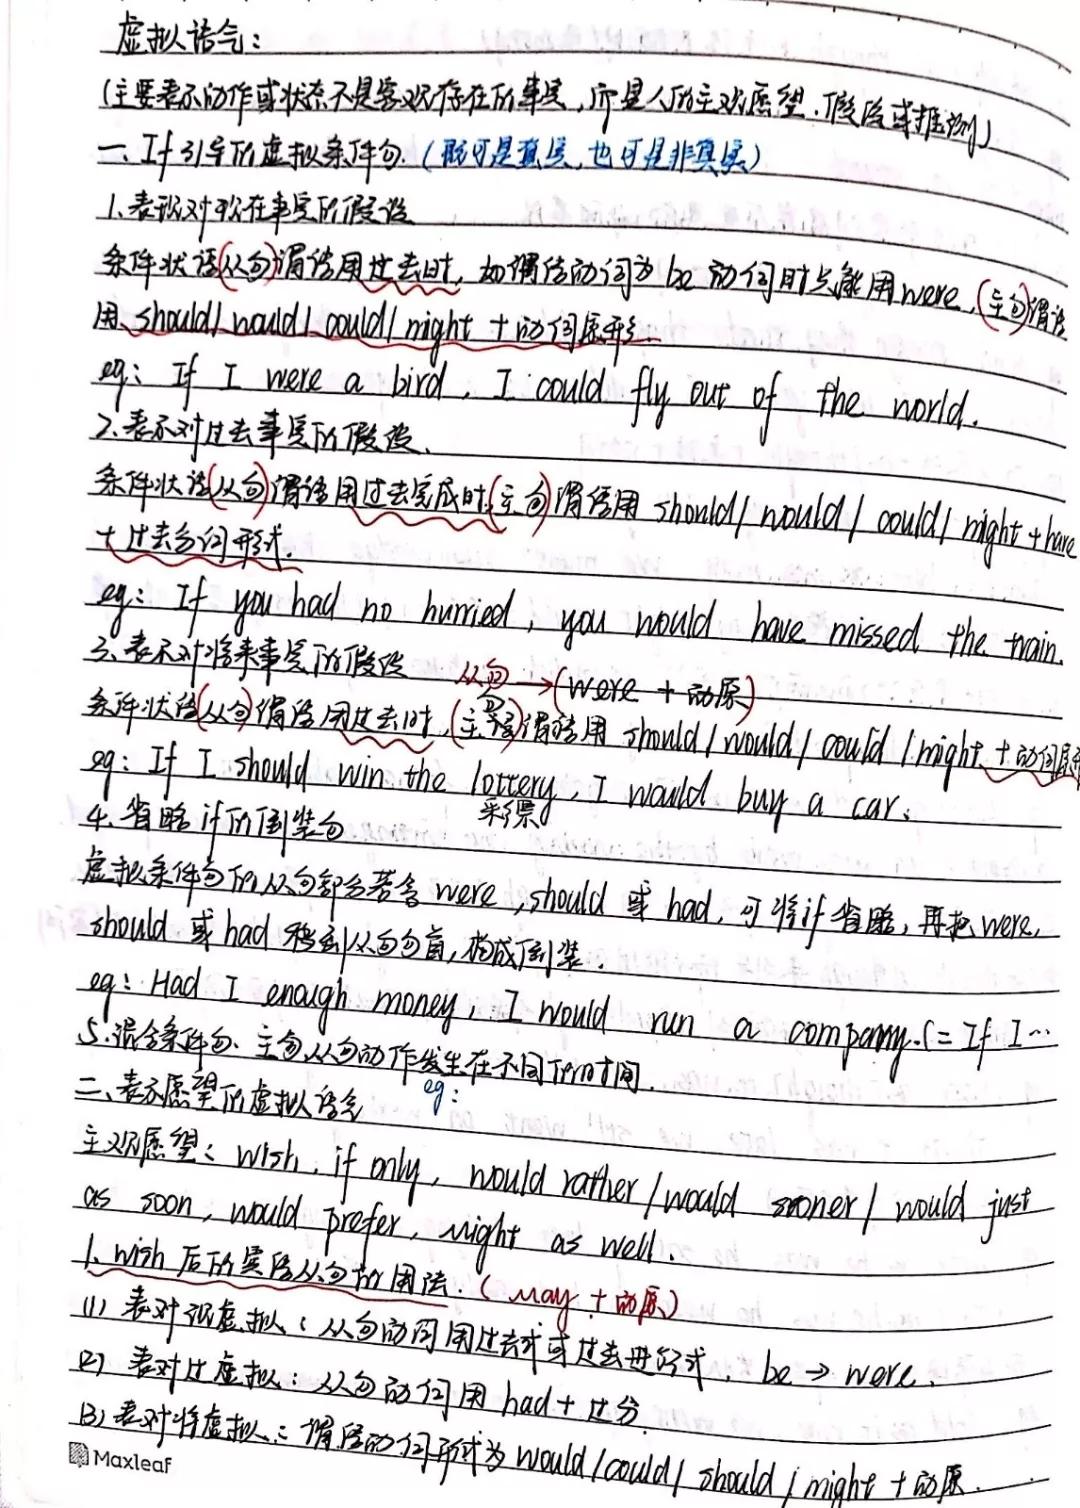 虚拟语气：
(主要表示动作或状态不是客观存在的事实，而是人的主观愿望、假设或推测)
一、If引导的虚拟条件句.(既可是真实，也可是非真实)
1、表现对现在事实的假设
条件状语(从句)谓语用过去时，如谓语动词为 be 动词时只能用were，(主句)谓语
用、should/would/could/might + 动词原形.
eg: If I were a bird, I could fly out of the world.
2、表示对过去事实的假设.
条件状语(从句)谓语用过去完成时,(主句)谓语用 should/would/could/might+have
+过去分词形式.
eg: If you had no hurried, you would have missed the train.
3、表示对将来事实的假设 从句→(were + 动原)
条件状语(从句)谓语用过去时,(主句)谓语用 should/would/could/might +动词原形
eg: If I should win the lottery, I would buy a car.
彩票
4、省略if的倒装句
虚拟条件句的从句部分若含were,should 或 had,可将if 省略,再把were,
should 或 had 移到从句句首,构成倒装.
eg: Had I enough money, I would run a company.(= If I…
5.混合条件句、主句从句动作发生在不同的时间.
eg:
二、表示愿望的虚拟语气
主观愿望: wish, if only, would rather/would sooner/would just
as soon, would prefer, might as well
1、wish 后的宾语从句的用法.(may + 动原)
(1) 表对现虚拟:从句动词用过去式或过去进行式, be→were.
(2) 表对过虚拟:从句动词用had+过分
(3) 表对将虚拟.:谓语动词形式为would/could/should/might +动原.
Maxleaf